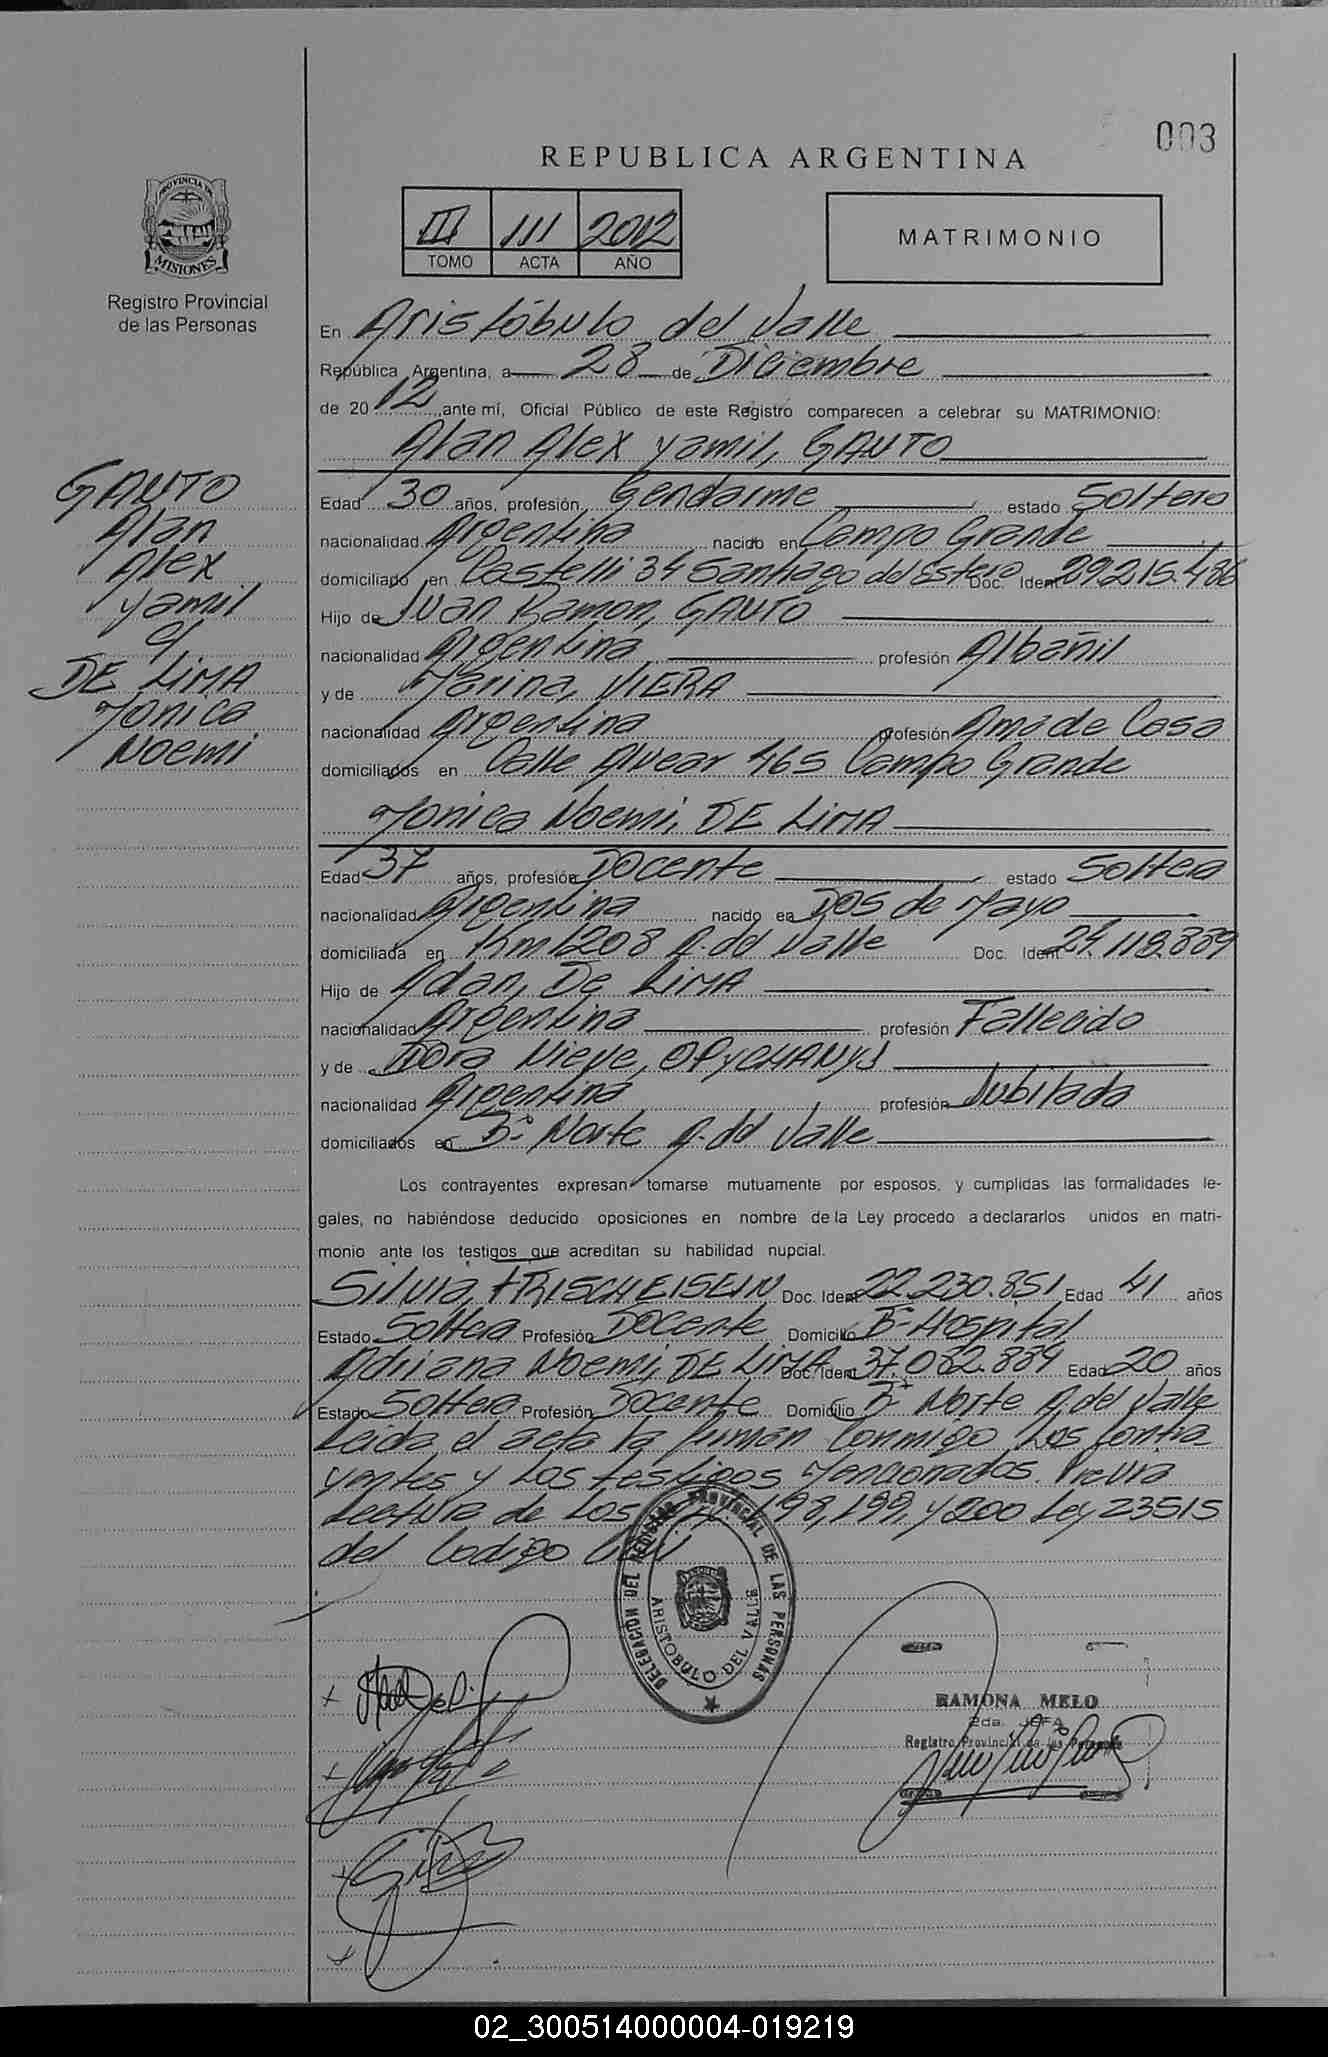 003
REPUBLICA ARGENTINA
III 111 2012
TOMO ACTA AÑO
MATRIMONIO
PROVINCIA DE MISIONES
Registro Provincial
de las Personas
En Aristóbulo del Valle
República Argentina, a 28 de Diciembre
de 20 12 ante mí, Oficial Público de este Registro comparecen a celebrar su MATRIMONIO:
Alan Alex Yamil, GAUTO
GAUTO
Alan
Alex
Yamil
c/
DE LIMA
Monica
Noemi
Edad 30 años, profesión Gendarme estado Soltero
nacionalidad Argentina nacido en Campo Grande
domiciliado en Castelli 34 Santiago del Estero Doc. Ident 29.215.486
Hijo de Juan Ramon, GAUTO
nacionalidad Argentina profesión Albañil
y de Marina, VIERA
nacionalidad Argentina profesión Ama de Casa
domiciliados en Calle Alvear 465 Campo Grande
Monica Noemi, DE LIMA
Edad 37 años, profesión Docente estado Soltera
nacionalidad Argentina nacido en Dos de Mayo
domiciliada en Km 1208 A. del Valle Doc. Ident 24.118.889
Hijo de Adan, De LIMA
nacionalidad Argentina profesión Fallecido
y de Dora Nieve, OPYCHANYJ
nacionalidad Argentina profesión Jubilada
domiciliados en Bº Norte A. del Valle
Los contrayentes expresan tomarse mutuamente por esposos, y cumplidas las formalidades le-
gales, no habiéndose deducido oposiciones en nombre de la Ley procedo a declararlos unidos en matri-
monio ante los testigos que acreditan su habilidad nupcial.
Silvia, FRISCHEISEIN Doc. Ident 22.230.851 Edad 41 años
Estado Soltera Profesión Docente Domicilio Bº Hospital
Adriana Noemi, DE LIMA Doc. Ident 37.082.884 Edad 20 años
Estado Soltera Profesión Docente Domicilio Bº Norte A. del Valle
Leida el acta la firman Conmigo Los Contra
yentes y Los testigos Mencionados. Previa
Lectura de Los Art. 198, 199, y 200 Ley 23515
del Codigo Civil
DELEGACION DEL REGISTRO PROVINCIAL DE LAS PERSONAS
ARISTOBULO DEL VALLE
RAMONA MELO
2da. JEFA
Registro Provincial de las Personas
02_300514000004-019219